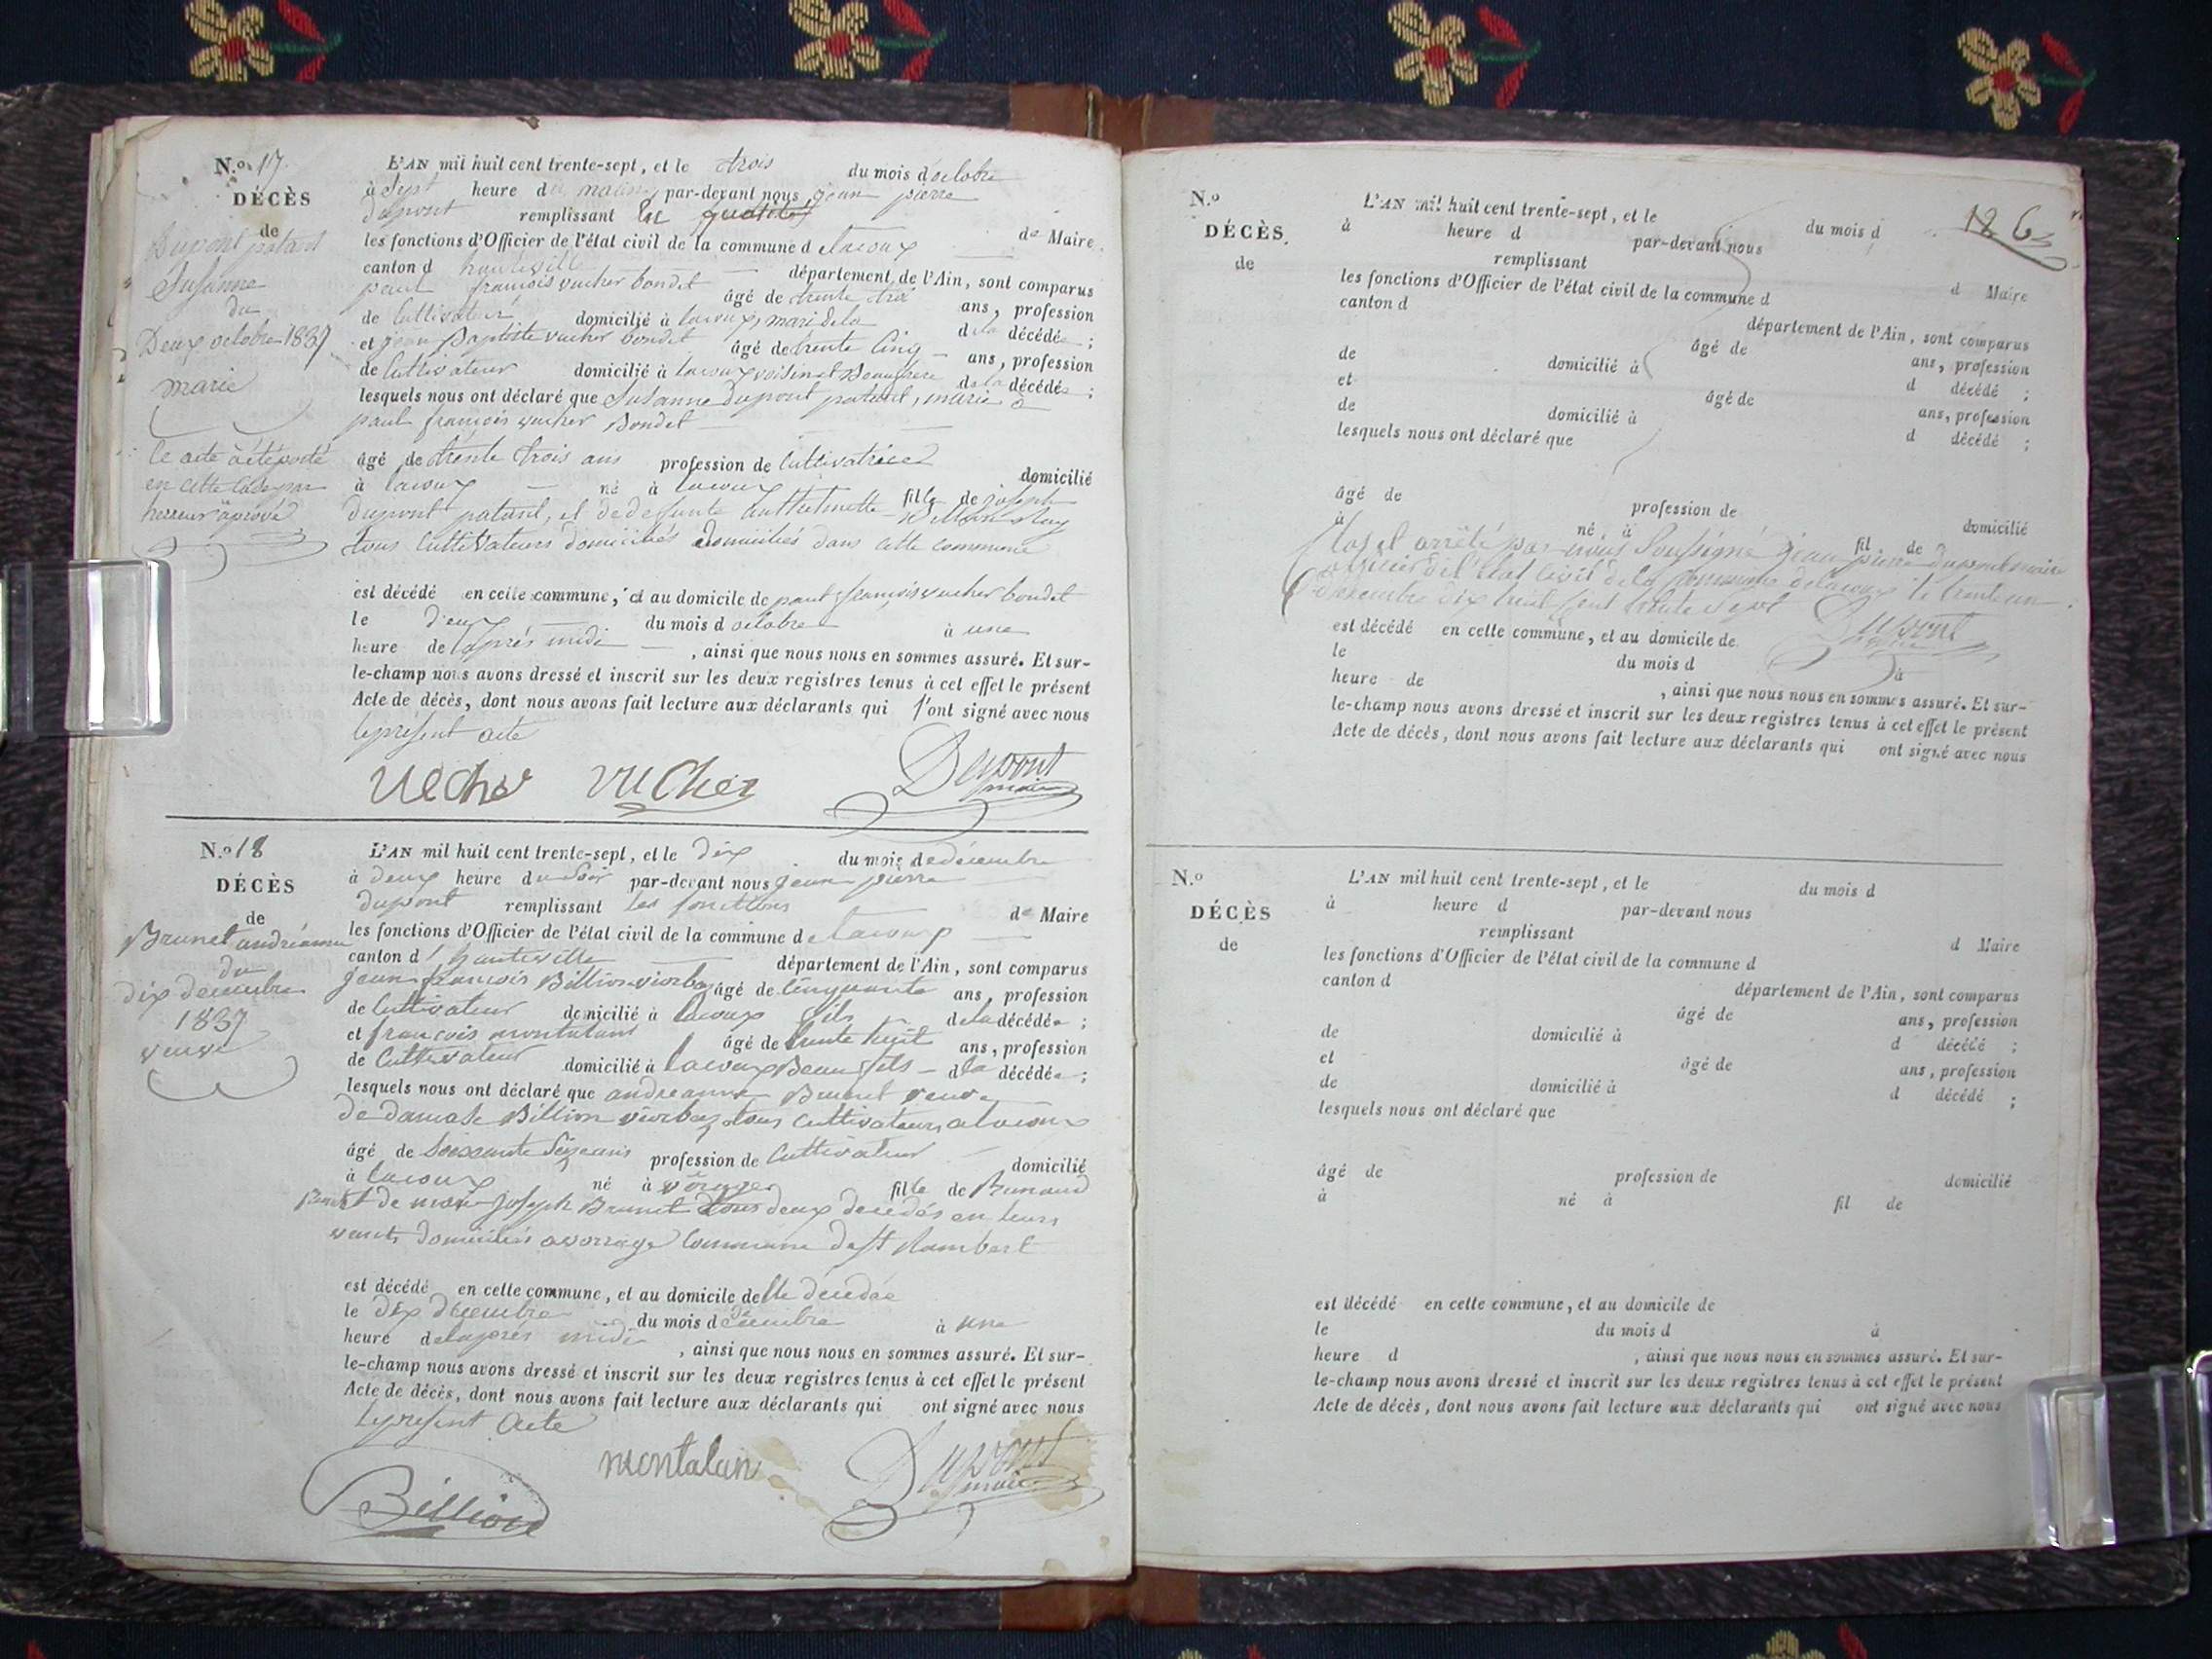 N.o 17.
DÉCÈS
de
Dupont patard
Susanne
du
Deux octobre 1837
marié
le acte a été porté
en cette case par
herreur aprové
L'AN mil huit cent trente-sept, et le trois du mois d'octobre
à Sept heure du matin par-devant nous jean pierre
dupont remplissant
les fonctions d'Officier de l'état civil de la commune de lacoux de Maire
canton d hauteville département de l'Ain, sont comparus
paul françois vucher bondet âgé de trente trois ans, profession
de Cultivateur domicilié à lacoux, mari de la de la décédée ;
et jean Baptiste vucher bondet âgé de trente Cinq ans, profession
de Cultivateur domicilié à lacoux voisin et Beaufrere de la décédée ;
lesquels nous ont déclaré que Susanne dupont patard, marié à
paul françois vucher Bondet
âgé de trente trois ans profession de Cultivatrice domicilié
à lacoux né à lacoux fille de joseph
dupont patard, et de defunte
tous Cultivateurs domiciliés domiciliés dans cette commune
est décédé en cette commune, et au domicile de paul françois vucher bondet
le deux du mois d octobre à une
heure de l'après midi, ainsi que nous nous en sommes assuré. Et sur-
le-champ nous avons dressé et inscrit sur les deux registres tenus à cet effet le présent
Acte de décès, dont nous avons fait lecture aux déclarants qui l'ont signé avec nous
le présent acte
vucher vucher Dupont
maire
N.o 18
DÉCÈS
de
Brunet andréanne
du
dix decembre
1837
veuve
L'AN mil huit cent trente-sept, et le dix du mois de décembre
à deux heure du Soir par-devant nous jean pierre
dupont remplissant les fonctions de Maire
les fonctions d'Officier de l'état civil de la commune de lacoux
canton d'hauteville département de l'Ain, sont comparus
jean françois Billion âgé de Cinquante ans, profession
de Cultivateur domicilié à lacoux fils de la décédée ;
et françois montalan âgé de trente huit ans, profession
de Cultivateur domicilié à lacoux Beau fils d la décédée ;
lesquels nous ont déclaré que andreanne Brunet veuve
de Billion tous cultivateurs a lacoux
âgé de Soixante Seize ans profession de Cultivateur domicilié
à lacoux né à fille de
Brunet de marie joseph Brunet tous deux decédés en leurs
vivants domiciliés a vorrage Commune de St Rambert
est décédé en cette commune, et au domicile de lle décédée
le dix décembre du mois décembre à une
heure de laprès midi, ainsi que nous nous en sommes assuré. Et sur-
le-champ nous avons dressé et inscrit sur les deux registres tenus à cet effet le présent
Acte de décès, dont nous avons fait lecture aux déclarants qui ont signé avec nous
le présent Acte
Billion montalan Dupont
maire
186
N.o
DÉCÈS.
de
L'AN mil huit cent trente-sept, et le du mois d
à heure d par-devant nous
remplissant d Maire
les fonctions d'Officier de l'état civil de la commune d
canton d département de l'Ain, sont comparus
âgé de ans, profession
de domicilié à d décédé ;
et âgé de ans, profession
de domicilié à d décédé ;
lesquels nous ont déclaré que
âgé de profession de domicilié
à né à fil de
Clos et arrêté par nous Soussigné jean pierre dupont maire
officier de l'état Civil de la commune de lacoux le trente un
décembre dix huit Cent trente sept
Dupont
maire
est décédé en cette commune, et au domicile de
le du mois d à
heure de, ainsi que nous nous en sommes assuré. Et sur-
le-champ nous avons dressé et inscrit sur les deux registres tenus à cet effet le présent
Acte de décès, dont nous avons fait lecture aux déclarants qui ont signé avec nous
N.o
DÉCÈS
de
L'AN mil huit cent trente-sept, et le du mois d
à heure d par-devant nous
remplissant d Maire
les fonctions d'Officier de l'état civil de la commune d
canton d département de l'Ain, sont comparus
âgé de ans, profession
de domicilié à d décédé ;
et âgé de ans, profession
de domicilié à d décédé ;
lesquels nous ont déclaré que
âgé de profession de domicilié
à né à fil de
est décédé en cette commune, et au domicile de
le du mois d à
heure d, ainsi que nous nous en sommes assuré. Et sur-
le-champ nous avons dressé et inscrit sur les deux registres tenus à cet effet le présent
Acte de décès, dont nous avons fait lecture aux déclarants qui ont signé avec nous